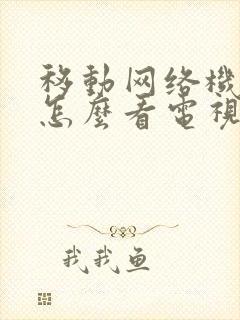 移動网络機
怎麼看電視
我我鱼